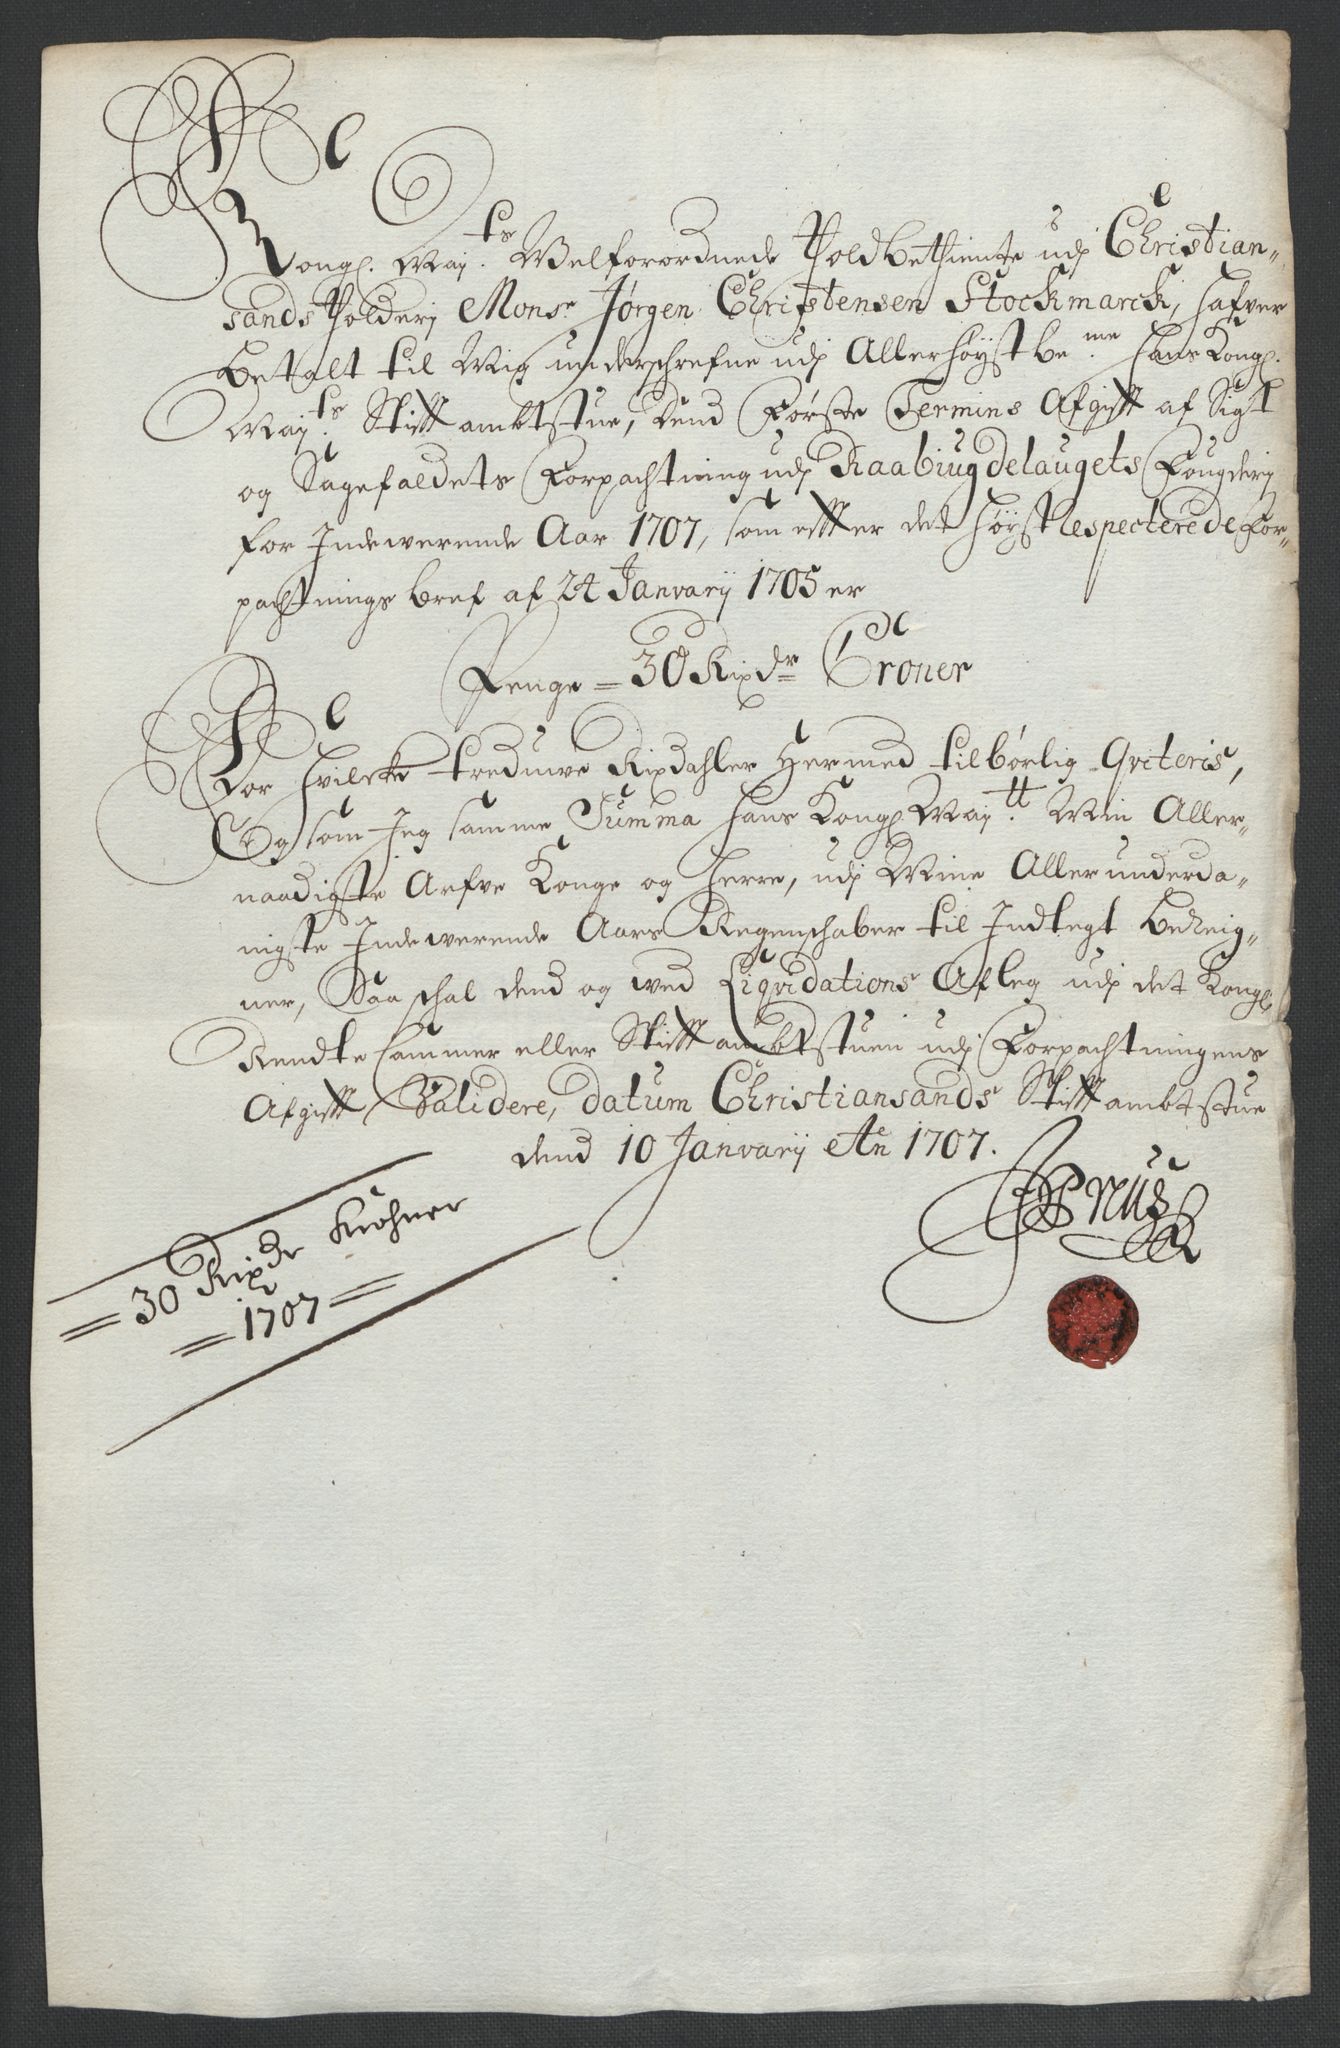 Kongl. May:ts Welforordnede Toldbethiente udj Christian-
sands Tolderj Monsr Jørgen Christensen Stockmarck, hafver
betalt til Mig underschrefne udj Allerhøystbe:me hans Kongl.
May:ts Stifftambtstue, dend Første Termins Afgifft af Sigt
og Sagefaldets Forpachtning udj Raabiugdelaugets Fougderj
for Indewerende Aar 1707, som effter det høyst respecterede For-
pachtnings bref af 24 Janvarij 1705 er
Penge = 30 Rixdr Croner
For hvilcke tredive Rixdahler hermed tilbørlig Qviteris,
Og som Jeg samme Summa hans Kongl May:tt Min Aller-
naadigste Arfve Konge og Herre, udj Mine Allerunderda-
nigste Indewerende Aars Regenschaber til Indtegt bereig-
ner, Saa schal dend og wed Liqvidations Afleg udj det Kongl.
Rendte Cammer eller Stifftambtstuen udj Forpachtningens
Afgifft Validere, datum Christiansands Stifftambtstue
dend 10 Janvarij Ao 1707.
= 30 Rixdr Krohner
= 1707 =